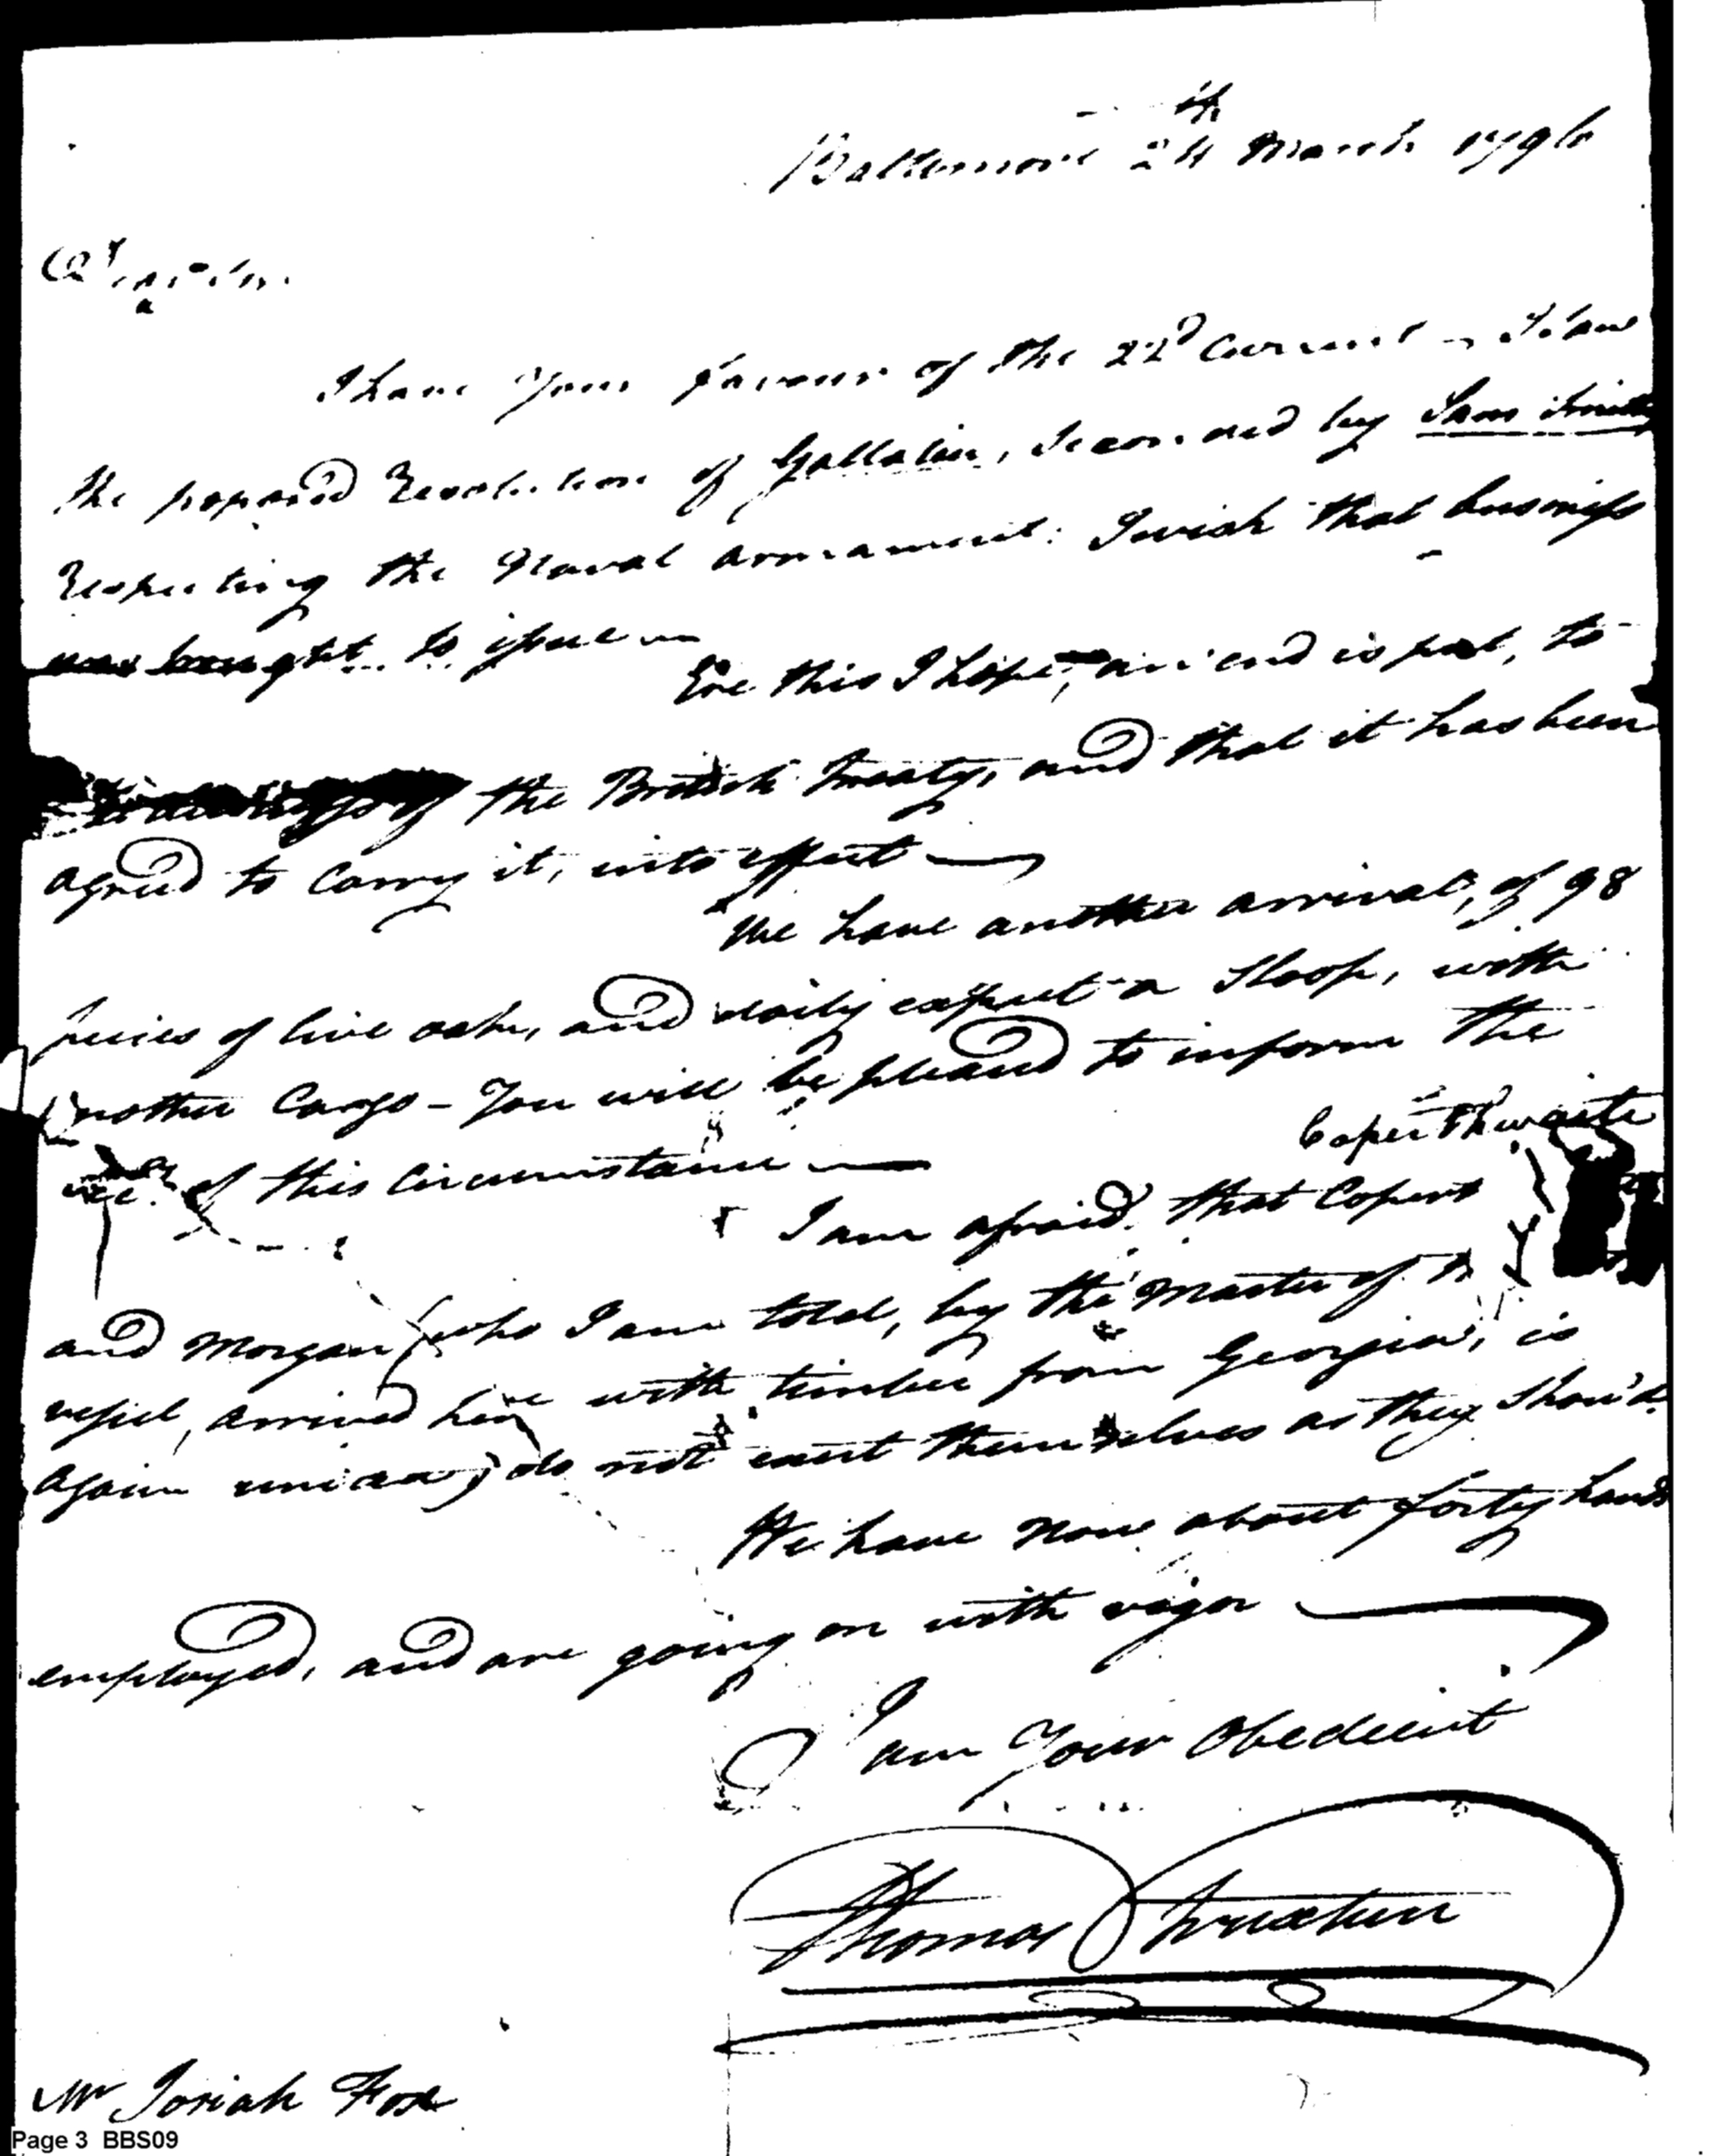 Baltimore 24th March 1796
Dr Sir
I have your favour of the 22d Current - I saw
the proposed Resolution of Gallatin, seconded by Sam Smith
Respecting the Naval armament. I wish that business
was brought to issue
Ere this I hope, an end is put, to
the British Treaty, and that it has been
agreed to carry it, into effect
We have another arrival, of 98
pieces of live oak, and daily expect a Sloop, with
another Cargo - You will be pleased to inform the
of this circumstance
Coperthwaite
I am afraid, that Copert
and Morgan (who I am told, by the Master of
vessel, arrived here with timber from Georgia, is
again do not exert themselves as they shou'd
We have now about forty hands
employed, and are going on with vigor
I am Your Obedient
Thomas Truxtun
Mr Josiah Fox
Page 3 BBS09